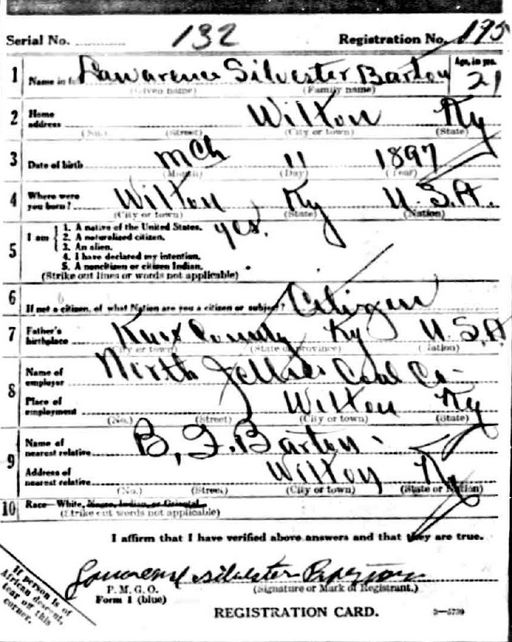 Serial No. 132 Registration No. 195
1 Name in full Lawarence Silvester Barton Age, in yrs. 21
(Given name) (Family name)
2 Home address Wilton Ky
(No.) (Street) (City or town) (State)
3 Date of birth Mch 11 1897
(Month) (Day) (Year)
4 Where were you born? Wilton Ky U.S.A.
(City or town) (State) (Nation)
5 I am
1. A native of the United States. yes.
2. A naturalized citizen.
3. An alien.
4. I have declared my intention.
5. A noncitizen or citizen Indian.
(Strike out lines or words not applicable)
6 If not a citizen, of what Nation are you a citizen or subject? Citizen
7 Father's birthplace Knox County Ky U.S.A
(City or town) (State or province) (Nation)
8 Name of employer North Jellico Coal Co-
Place of employment Wilton Ky
(No.) (Street) (City or town) (State)
9 Name of nearest relative B. F. Barton.
Address of nearest relative Wilton Ky
(No.) (Street) (City or town) (State or Nation)
10 Race—White, Negro, Indian, or Oriental
(Strike out words not applicable)
I affirm that I have verified above answers and that they are true.
Lawarence silvester
P. M. G. O. (Signature or Mark of Registrant.)
Form 1 (blue)
REGISTRATION CARD. 3—5739
If person is of
African descent,
tear off this
corner.